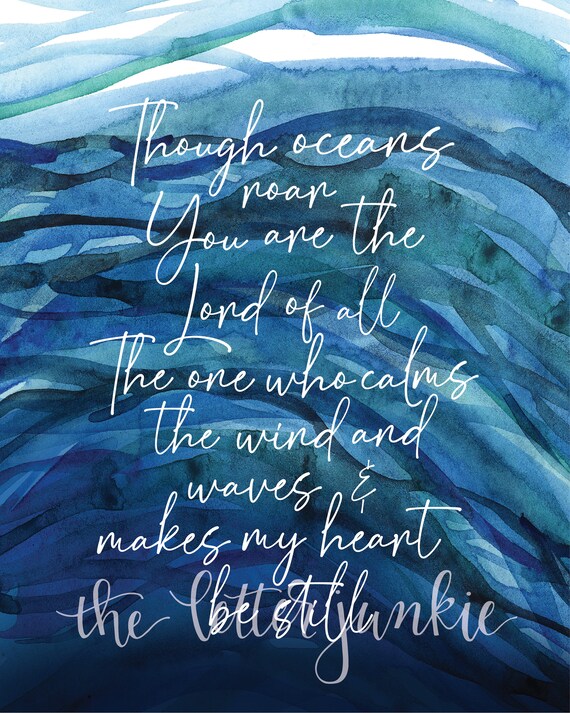 Though oceans
roar
You are the
Lord of all
The one who calms
the wind and
waves &
makes my heart
be still
the letter junkie